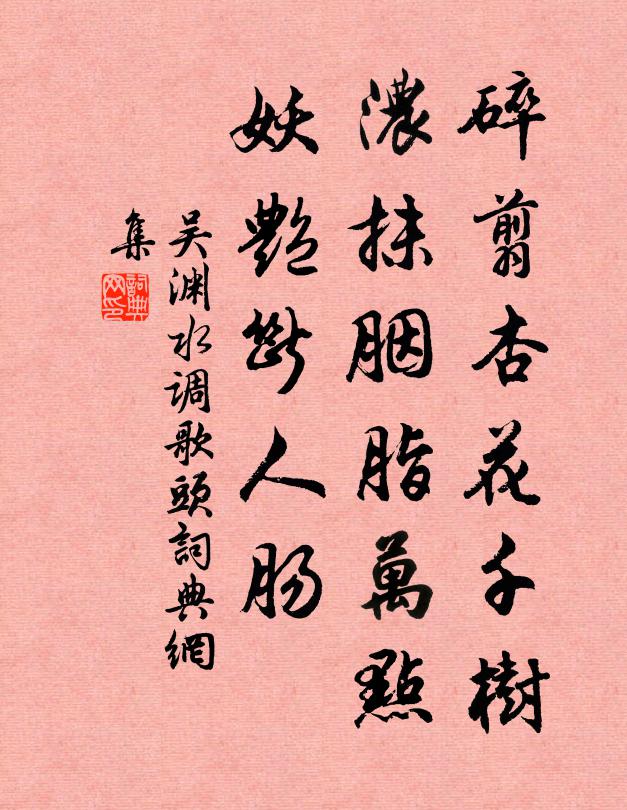 碎剪杏花千樹
濃抹胭脂萬點
妖艷斷人肠
吴渊水调歌頭詞典網
集
詞典
网印